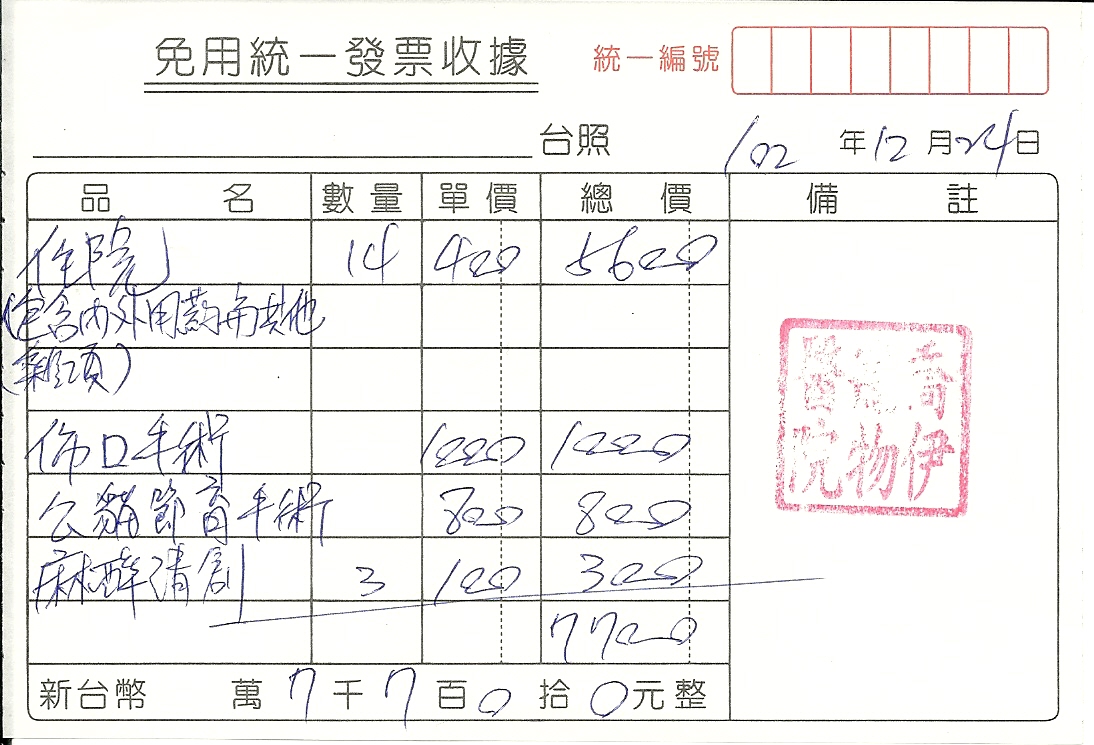 免用統一發票收據
統一編號
台照
102年12月24日
品名 數量 單價 總價 備註
住院 14 400 5600
(包含內外用藥與其他
雜項)
傷口手術 1000 1000
公貓節育手術 800 800
麻醉清創 3 100 300
7700
新台幣 萬7千7百0拾0元整
喬伊
動物
醫院